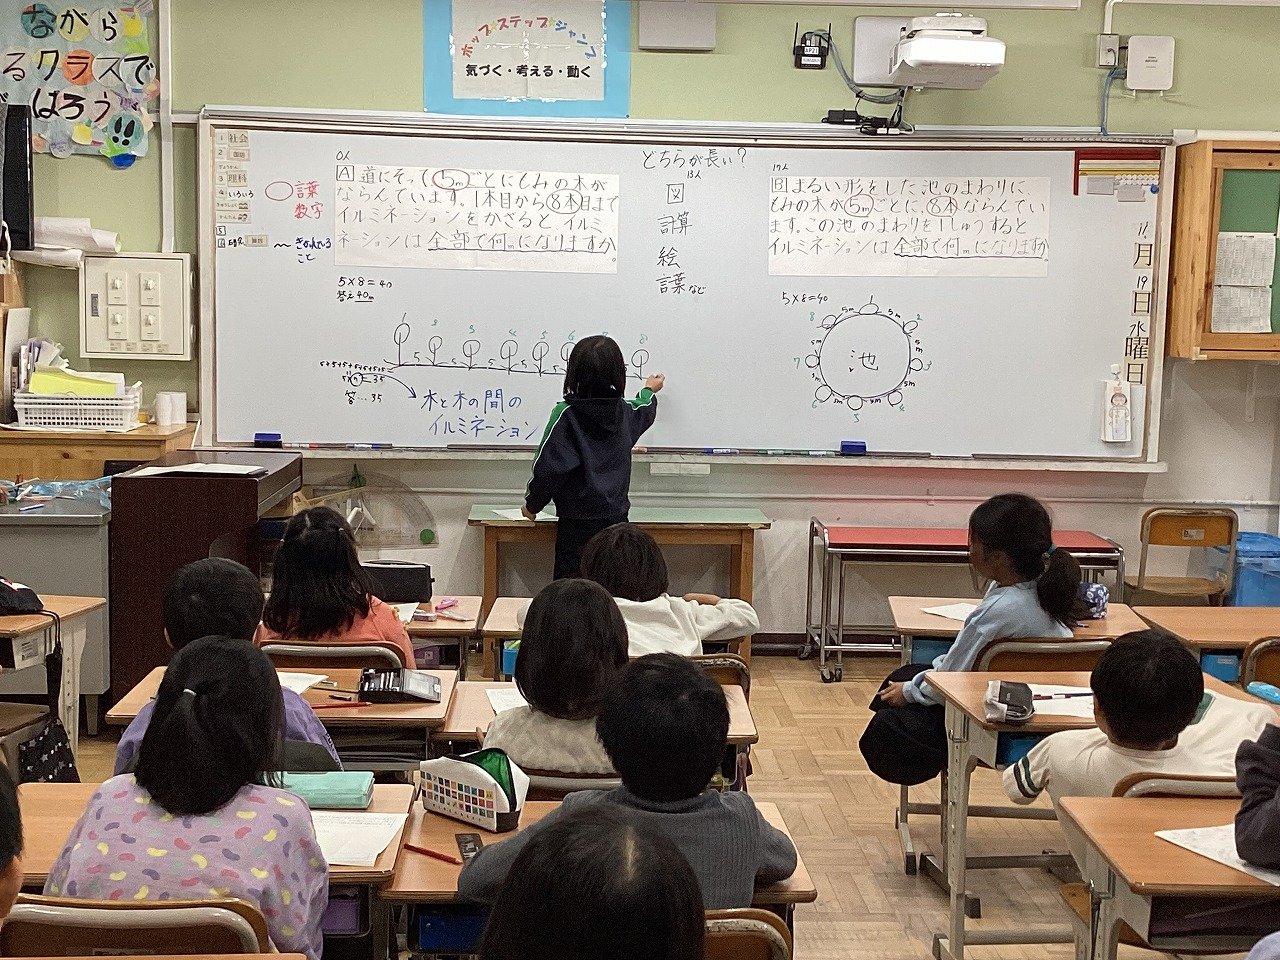 ながら
るクラスで
はろう
ホップ・ステップ・ジャンプ
気づく・考える・動く
AP21
1 社会
2 国語
3 理科
4 いろいろ
5
6 算数
言葉
数字
〜 きかれている
こと
0人
A 道にそって5mごとにもみの木が
ならんでいます。1本目から8本目まで
イルミネーションをかざると イルミ
ネーションは全部で何mになりますか。
5×8=40
答え40m
1 2 3 4 5 6 7 8
5 5 5 5 5
5+5+5+5+5+5+5
5×7=35
35
木と木の間の
イルミネーション
どちらが長い?
13人
図
計算
絵
言葉など
17人
B まるい形をした池のまわりに、
もみの木が5mごとに、8本ならんでい
ます。この池のまわりを1しゅうすると
イルミネーションは全部で何mになりますか。
5×8=40
1 2 3 4 5 6 7 8
5m 5m 5m 5m 5m 5m 5m 5m
池
11
月
19
日
水
曜
日